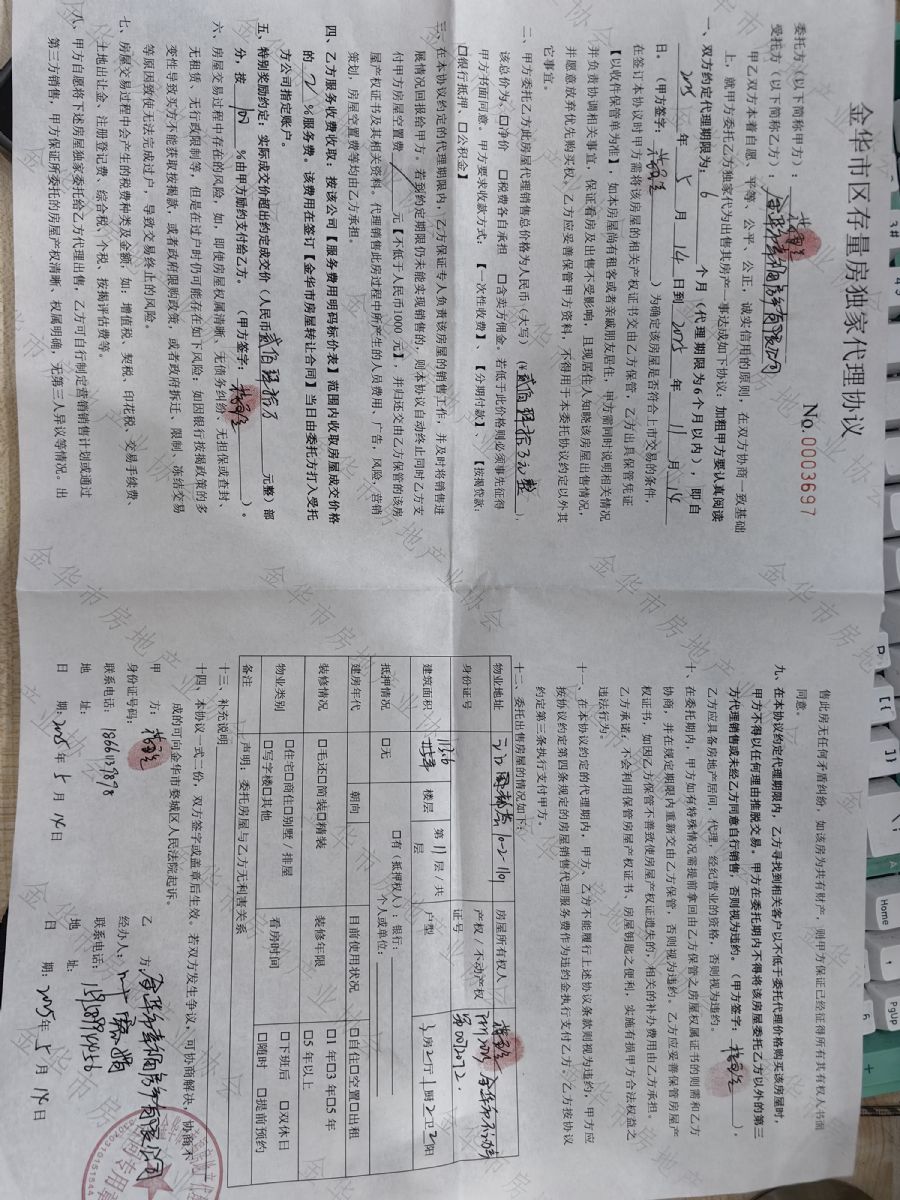 金华市区存量房独家代理协议
No.0003697
委托方(以下简称甲方):
受托方(以下简称乙方):
甲乙双方本着自愿、平等、公平、公正、诚实信用的原则,在双方协商一致基础
上,就甲方委托乙方独家代为出售其房产一事达成如下协议:加粗甲方要认真阅读
一、双方约定代理期限为:6个月(代理期限为6个月以内),即自
2025年5月14日到2025年11月14
日。(甲方签字:)为确定该房屋是否符合上市交易的条件,
在签订本协议时甲方需将该房屋的相关产权证书交由乙方保管,乙方出具保管凭证
【以收件保管单为准】,如本房屋尚有租客或者亲戚朋友居住,甲方需同时说明相关情况
并负责协调相关事宜,保证看房及出售不受影响,且现居住人知晓该房屋出售情况,
并愿意放弃优先购买权。乙方应妥善保管甲方资料,不得用于本委托协议约定以外其
它事宜。
二、甲方委托乙方此房屋代理销售总价格为人民币(大写)(¥贰佰),
该总价为、□净价 □税费各自承担 □含卖方佣金。若低于此价格则必须事先征得
甲方书面同意。甲方要求收款方式:【一次性收费】,【分期付款】;【按揭贷款:
□银行抵押、□公积金】
三、在本协议约定的代理期限内,乙方保证专人负责该房屋的销售工作,并及时将销售进
展情况回报给甲方。若到约定期限仍未能实现销售的,则本协议自动终止同时乙方支
付甲方房屋空置费 元【不低于人民币1000元】,并归还交由乙方保管的该房
屋产权证书及其相关资料。代理销售此房过程中所产生的人员费用、广告,风险、营销
策划,房屋空置费等均由乙方承担。
四、乙方服务收费收取:按该公司【服务费用明码标价表】范围内收取房屋成交价格
的2%服务费。该费用在签订【金华市房屋转让合同】当日由委托方打入受托
方公司指定账户。
五、特别奖励约定:实际成交价超出约定成交价(人民币贰佰 元整)部
分,按 %由甲方励约支付给乙方。(甲方签字:)。
六、房屋交易过程中存在的风险,如,即使房屋权属清晰、无债务纠纷、无担保或查封、
无租赁、无行政限制等,但是在过户时仍可能存在如下风险:如因银行按揭政策的多
变性导致买方不能获取按揭款,或者政府限购政策,或者政府拆迁,限制,冻结交易
等原因致使无法完成过户,导致交易终止的风险。
七、房屋交易过程中会产生的税费种类及金额,如:增值税、契税、印花税、交易手续费、
土地出让金、注册登记费、综合税、个税、按揭评估费等。
八、甲方自愿将下述房屋独家委托给乙方代理出售,乙方可自行制定营销销售计划或通过
第三方销售,甲方保证所委托的房屋产权清晰,权属明确,无第三人异议等情况。出
售此房无任何矛盾纠纷,如该房为共有财产,则甲方保证已经征得所有共有权人书面
同意。
九、在本协议约定代理期限内,乙方寻找到相关客户以不低于委托代理价格购买该房屋时,
甲方不得以任何理由推脱交易。甲方在委托期内不得将该房屋委托乙方以外的第三
方代理销售或未经乙方同意自行销售,否则视为违约。(甲方签字:),
乙方应具备房地产居间,代理,经纪营业的资格,否则视为违约。
十、在委托期内,甲方如有特殊情况需提前拿回由乙方保管之房屋权属证书的则需和乙方
协商,并在规定期限内重新交由乙方保管,否则视为违约。乙方应妥善保管房屋产
权证书,如因乙方保管不善致使房屋产权证遗失的,相关的补办费用由乙方承担。
乙方承诺:不会利用保管房屋产权证书、房屋钥匙之便利,实施有损甲方合法权益之
违法行为。
十一、在本协议约定的代理期内,甲方、乙方不能履行上述协议条款则视为违约,甲方应
按协议约定第四条规定的房屋销售代理服务费作为违约金执行支付乙方。乙方按协议
约定第三条执行支付甲方。
十二、委托出售房屋的情况如下:
物业地址 10-2-1101 房屋所有权人
身份证号 产权/不动产权证号
建筑面积 楼层 第11层/共 层 户型 3房2厅1厨2卫2阳
抵押情况 □无 □有(抵押权人):银行: 个人或单位:
建房年代 朝向 目前使用状况 □自住□空置□出租
装修情况 □毛坯□简装□精装 装修年限 □1年□3年□5年 □5年以上
物业类别 □住宅□商住□别墅/排屋 □写字楼□其他 看房时间 □下班后 □双休日 □随时 □提前预约
备注 声明:委托房屋与乙方无利害关系
十三、补充说明
十四、本协议一式二份,双方签字或盖章后生效。若双方发生争议,可协商解决,协商不
成的可向金华市婺城区人民法院起诉。
甲 方: 乙 方:
身份证号码: 经办人:
联系电话: 联系电话:
地 址: 地 址:
日 期:2025年5月14日 日 期:2025年5月14日